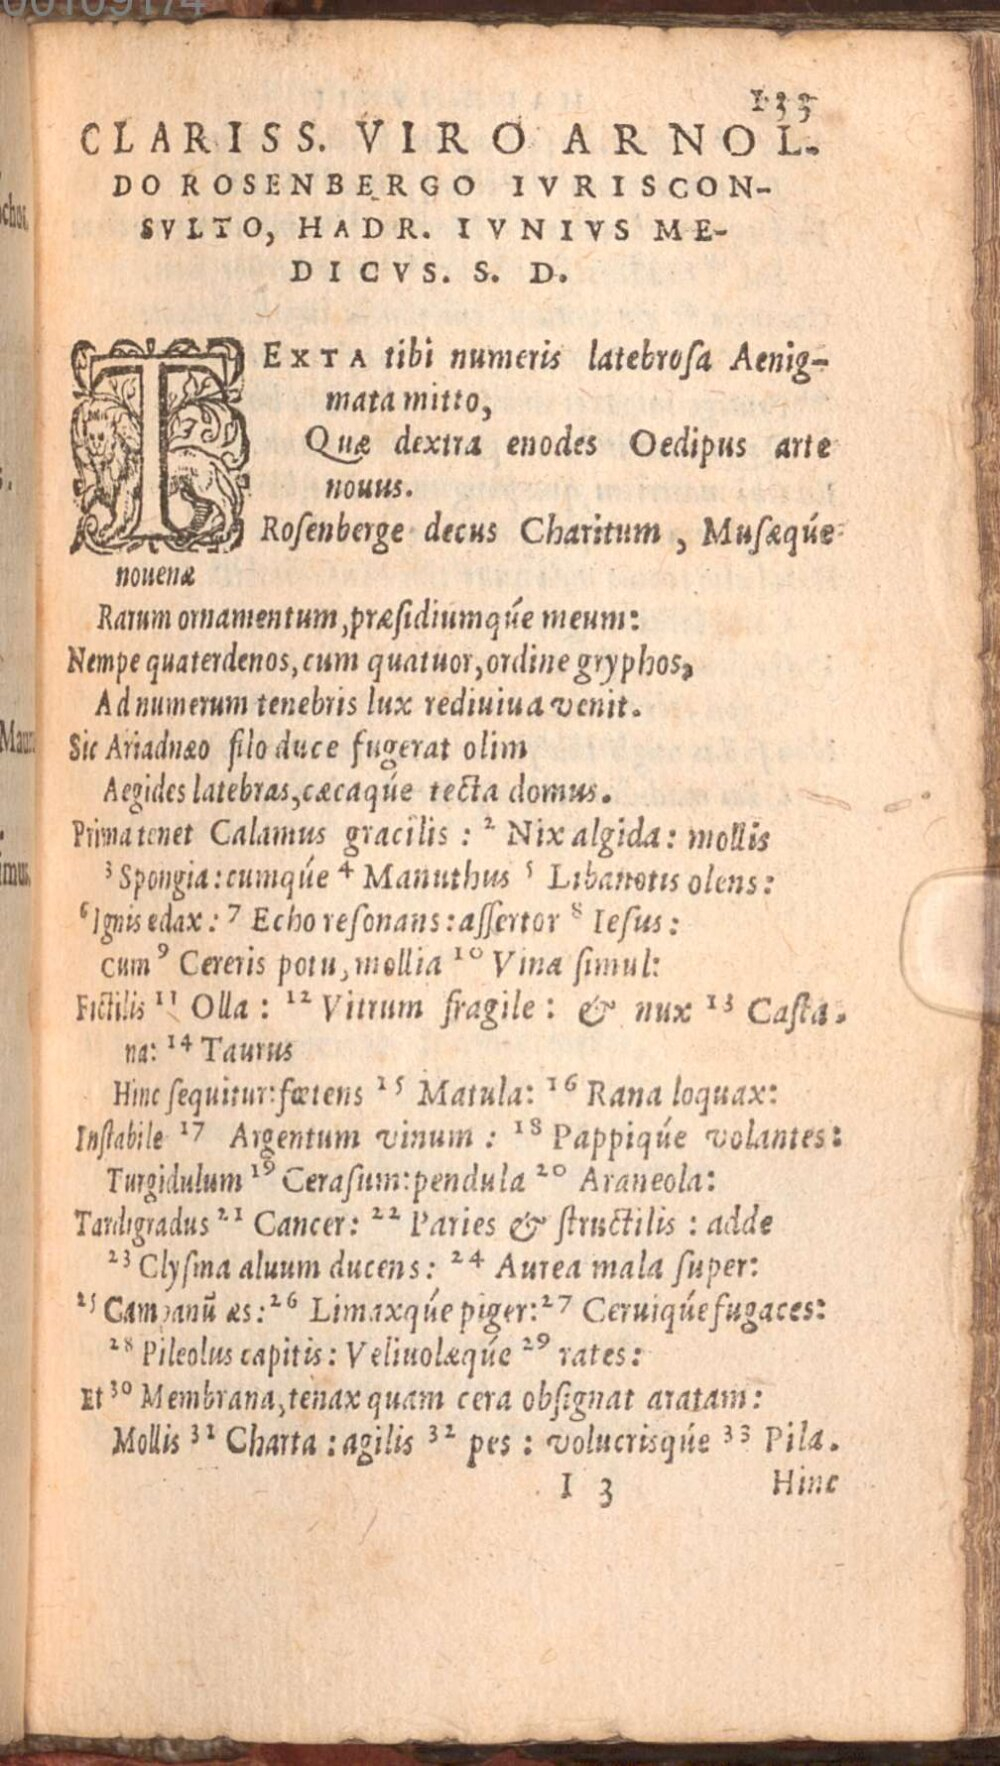 00109174
133
CLARISS. VIRO ARNOL-
DO ROSENBERGO IVRISCON-
SVLTO, HADR. IVNIVS ME-
DICVS. S. D.
TEXTA tibi numeris latebrosa Aenig-
mata mitto,
Quæ dextra enodes Oedipus arte
nouus.
Rosenberge decus Charitum, Musæqúe
nouenæ
Rarum ornamentum, præsidiumqúe meum:
Nempe quaterdenos, cum quatuor, ordine gryphos,
Ad numerum tenebris lux rediuiua venit.
Sic Ariadnæo filo duce fugerat olim
Aegides latebras, cæcaqúe tecta domus.
Prima tenet Calamus gracilis: 2 Nix algida: mollis
3 Spongia: cumqúe 4 Manuthus 5 Libanotis olens:
6 Ignis edax: 7 Echo resonans: assertor 8 Iesus:
cum 9 Cereris potu, mollia 10 Vina simul:
Fictilis 11 Olla: 12 Vitrum fragile: & nux 13 Casta-
na: 14 Taurus
Hinc sequitur: fœtens 15 Matula: 16 Rana loquax:
Instabile 17 Argentum vinum: 18 Pappiqúe volantes:
Turgidulum 19 Cerasum: pendula 20 Araneola:
Tardigradus 21 Cancer: 22 Paries & structilis: adde
23 Clysma aluum ducens: 24 Aurea mala super:
25 Campanũ æs: 26 Limaxqúe piger: 27 Ceruiqúe fugaces:
28 Pileolus capitis: Veliuolæqúe 29 rates:
Et 30 Membrana, tenax quam cera obsignat aratam:
Mollis 31 Charta: agilis 32 pes: volucrisqúe 33 Pila.
I 3
Hinc
Mau